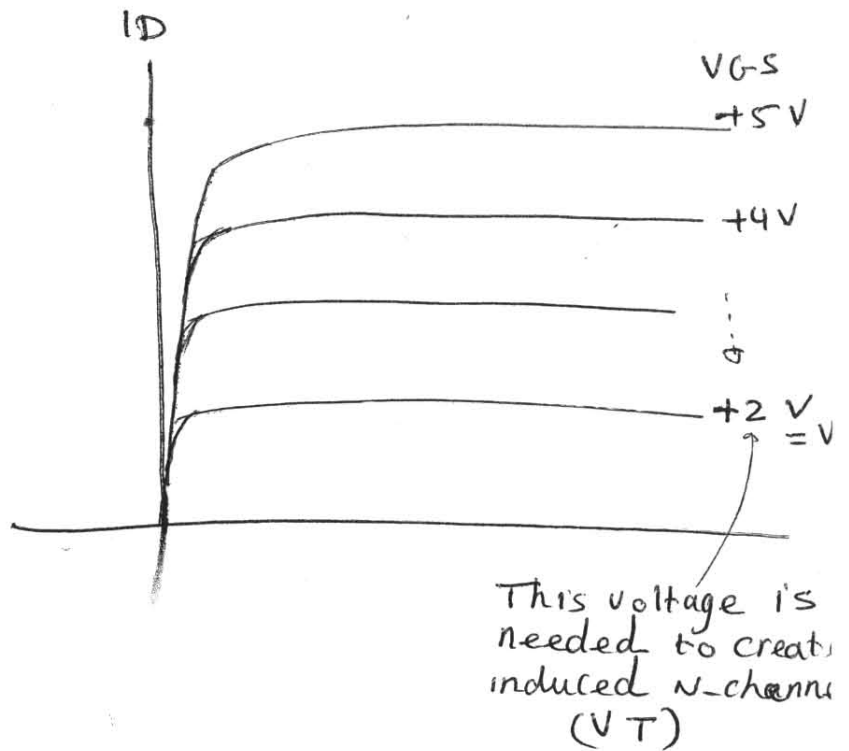 ID
VGS
+5V
+4V
+2 V
= V
This voltage is
needed to creat
induced N-chann
(VT)